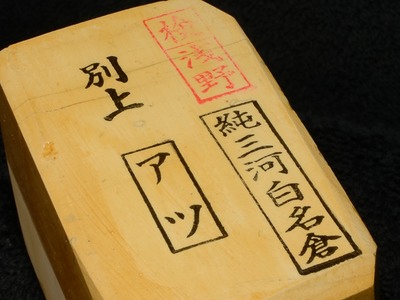 検浅野
純三河白名倉
別上
アツ